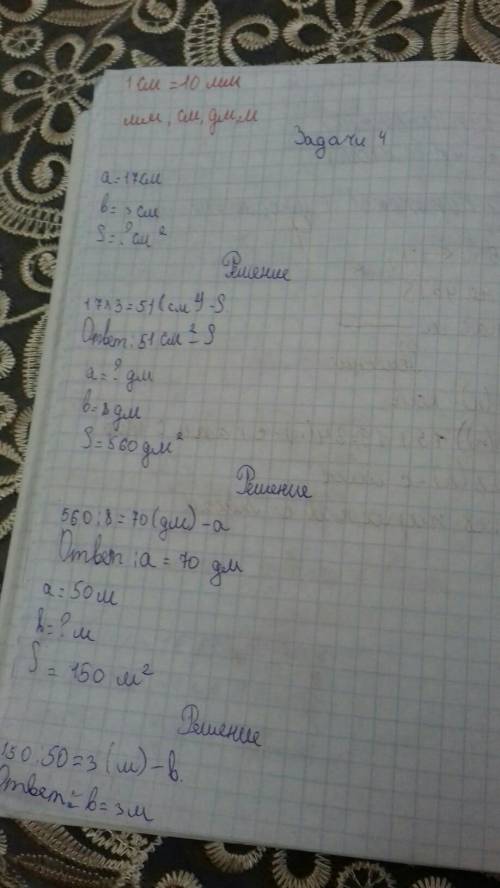 1 см = 10 мм
мм, см, дм, м
Задачи 4
a = 17см
b = 3 см
S = ? см²
Решение
17×3=51(см²)-S
Ответ: 51 см² - S
a = ? дм
b = 8 дм
S = 560 дм²
Решение
560:8=70(дм)-a
Ответ: a = 70 дм
a = 50 м
b = ? м
S = 150 м²
Решение
150:50=3(м)-b.
Ответ: b = 3м